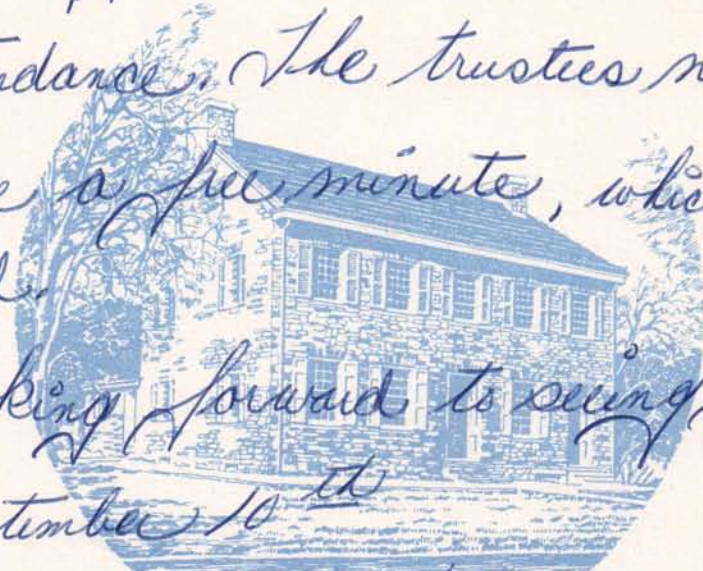 ndance. The trustees n
e a free minute, whic
l.
king forward to seeing
tember 10th